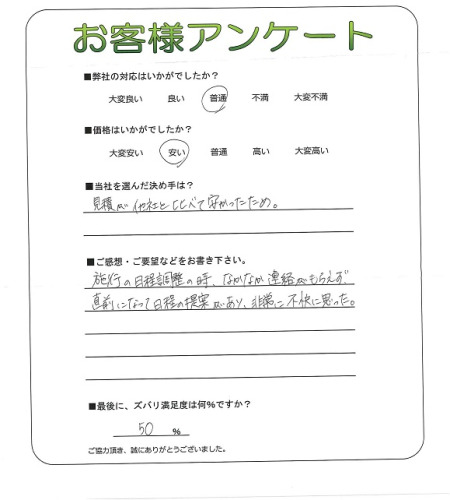 お客様アンケート
■弊社の対応はいかがでしたか？
大変良い　良い　普通　不満　大変不満
■価格はいかがでしたか？
大変安い　安い　普通　高い　大変高い
■当社を選んだ決め手は？
見積が他社とくらべて安かったため。
■ご感想・ご要望などをお書き下さい。
施行の日程調整の時、なかなか連絡がもらえず
直前になって日程の提案があり、非常に不快に思った。
■最後に、ズバリ満足度は何%ですか？
50 %
ご協力頂き、誠にありがとうございました。